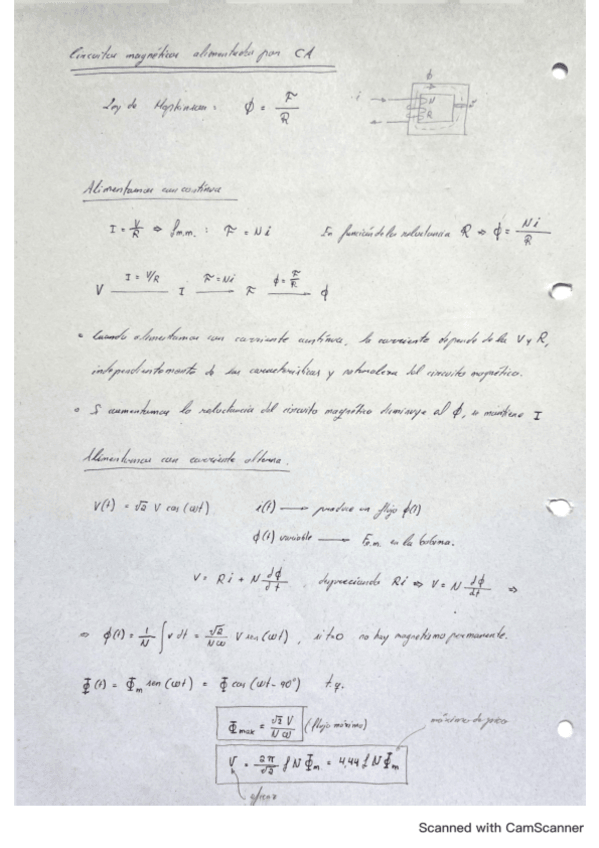 Circuitos magnéticos alimentados por CA
Ley de Hopkinson: ϕ = F/R
ϕ
i
N
R
Alimentamos con continua
I = V/R ⇒ f.m.m.: F = Ni En función de la reluctancia R ⇒ ϕ = Ni/R
V —I = V/R— I —F = Ni→ F —ϕ = F/R→ ϕ
• Cuando alimentamos con corriente continua, la corriente depende de la V y R,
independientemente de las características y naturaleza del circuito magnético.
• S aumentamos la reluctancia del circuito magnético disminuye el ϕ, se mantiene I
Alimentamos con corriente alterna.
V(t) = √2 V cos(ωt) i(t) → produce un flujo ϕ(t)
ϕ(t) variable → F.e.m. en la bobina.
V = Ri + N dϕ/dt , depreciando Ri ⇒ V = N dϕ/dt ⇒
⇒ ϕ(t) = 1/N ∫ v dt = √2/Nω V sen(ωt), si t=0 no hay magnetismo permanente.
Φ(t) = Φm sen(ωt) = Φ cos(ωt - 90°) t.q.
Φmax = √2 V/Nω (flujo máximo) máximo de pico
V = 2π/√2 f N Φm = 4,44 f N Φm
eficaz
Scanned with CamScanner